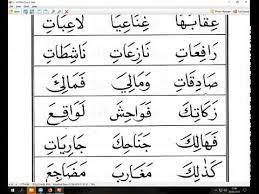 عِقَابَهَا غِنَاعِيَا لَاعِبَاتِ
رَافِعَاتِ نَازِعَاتِ نَاشِطَاتِ
صَادِقَاتِ وَمَالِيَ فَمَالِئَ
زَكَاتِكَ فَوَاحِشَ لَوَاقِعَ
فَهَالِكَ جَنَاحِكَ جَارِيَاتِ
كَذَالِكَ مَغَارِبَ مَضَاجِعَ